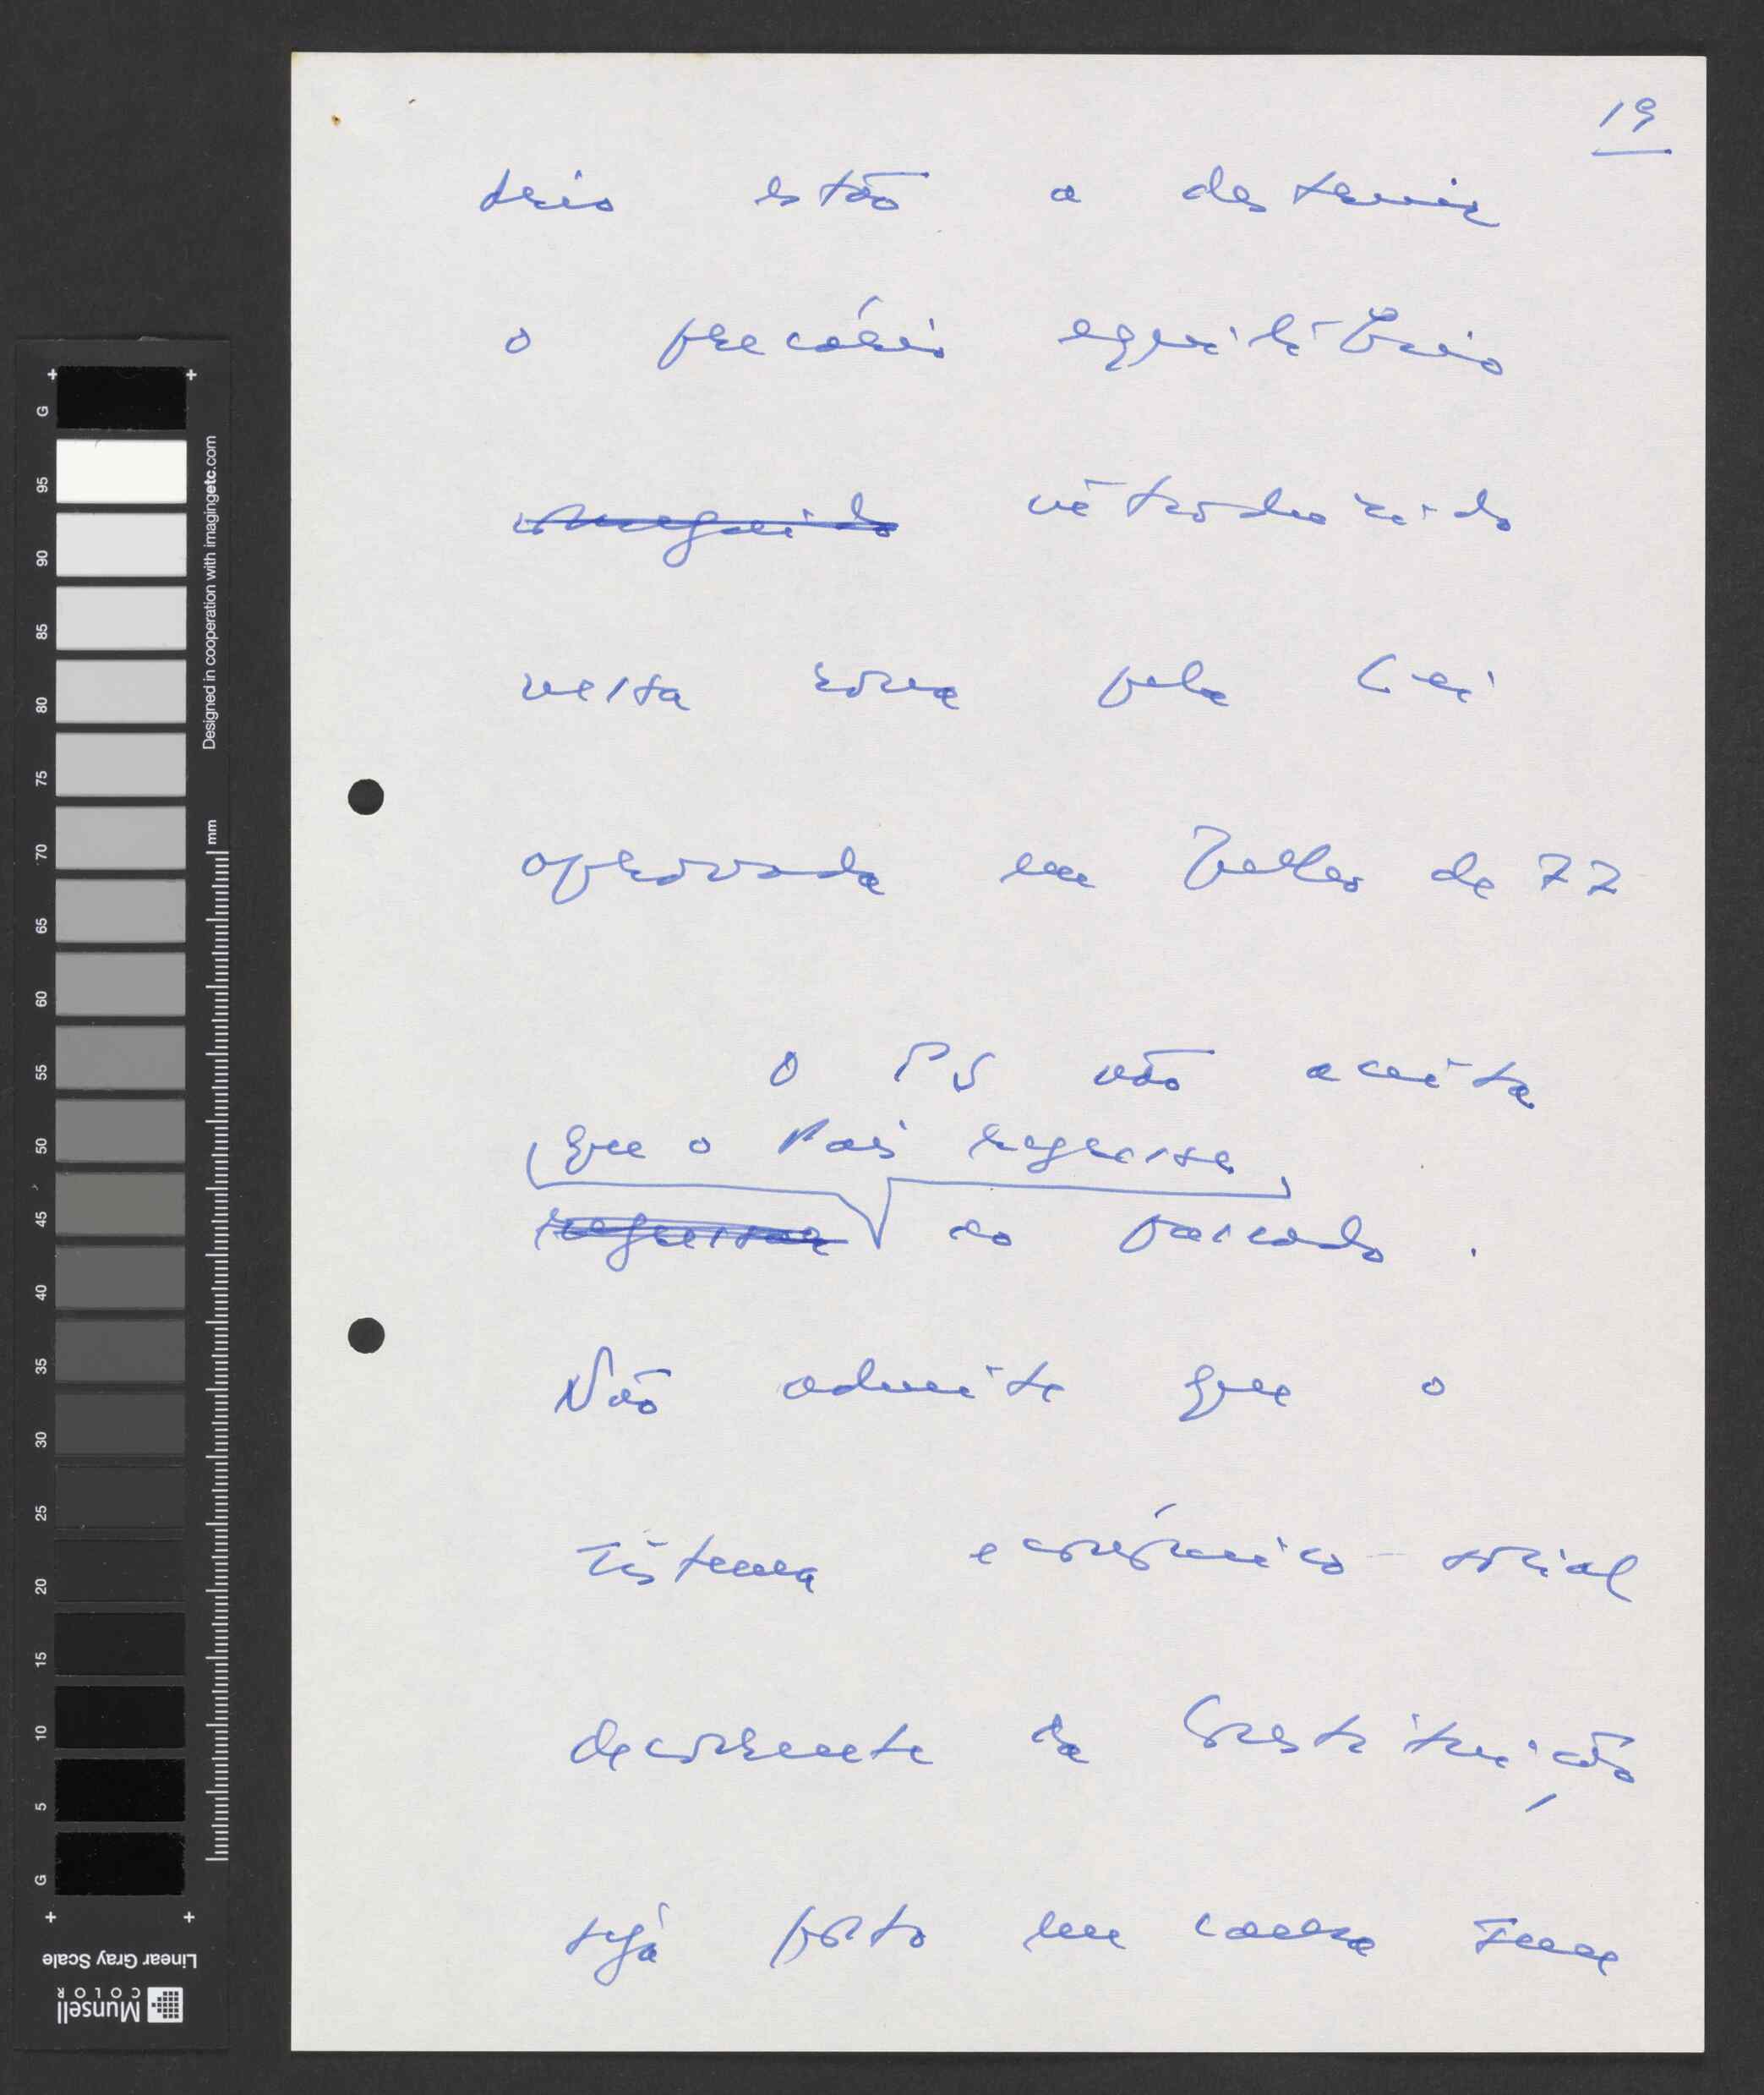 19
tério estão a destruir
o precário equilíbrio
conseguido introduzido
nessa zona pela Lei
aprovada em Julho de 77
O PS não aceita
que o País regresse
regressar ao passado.
Não admite que o
sistema económico-social
decorrente da Constituição,
seja posto em causa
G
95
90
85
80
75
70
65
60
55
50
45
40
35
30
25
20
15
10
5
G
Designed in cooperation with imagingetc.com
mm
Linear Gray Scale
Munsell
COLOR